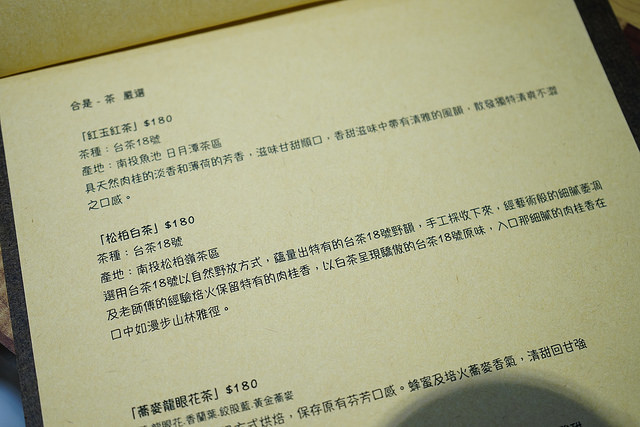 合是 - 茶 嚴選
「紅玉紅茶」$180
茶種：台茶18號
產地：南投魚池 日月潭茶區
具天然肉桂的淡香和薄荷的芳香，滋味甘甜順口，香甜滋味中帶有清雅的風韻，散發獨特清爽不澀
之口感。
「松柏白茶」$180
茶種：台茶18號
產地：南投松柏嶺茶區
選用台茶18號以自然野放方式，蘊量出特有的台茶18號野韻，手工採收下來，經藝術般的細膩萎凋
及老師傅的經驗焙火保留特有的肉桂香，以白茶呈現驕傲的台茶18號原味，入口那細膩的肉桂香在
口中如漫步山林雅徑。
「蕎麥龍眼花茶」$180
龍眼花.香蘭葉.絞股藍.黃金蕎麥
方式烘焙，保存原有芬芳口感。蜂蜜及焙火蕎麥香氣，清甜回甘強